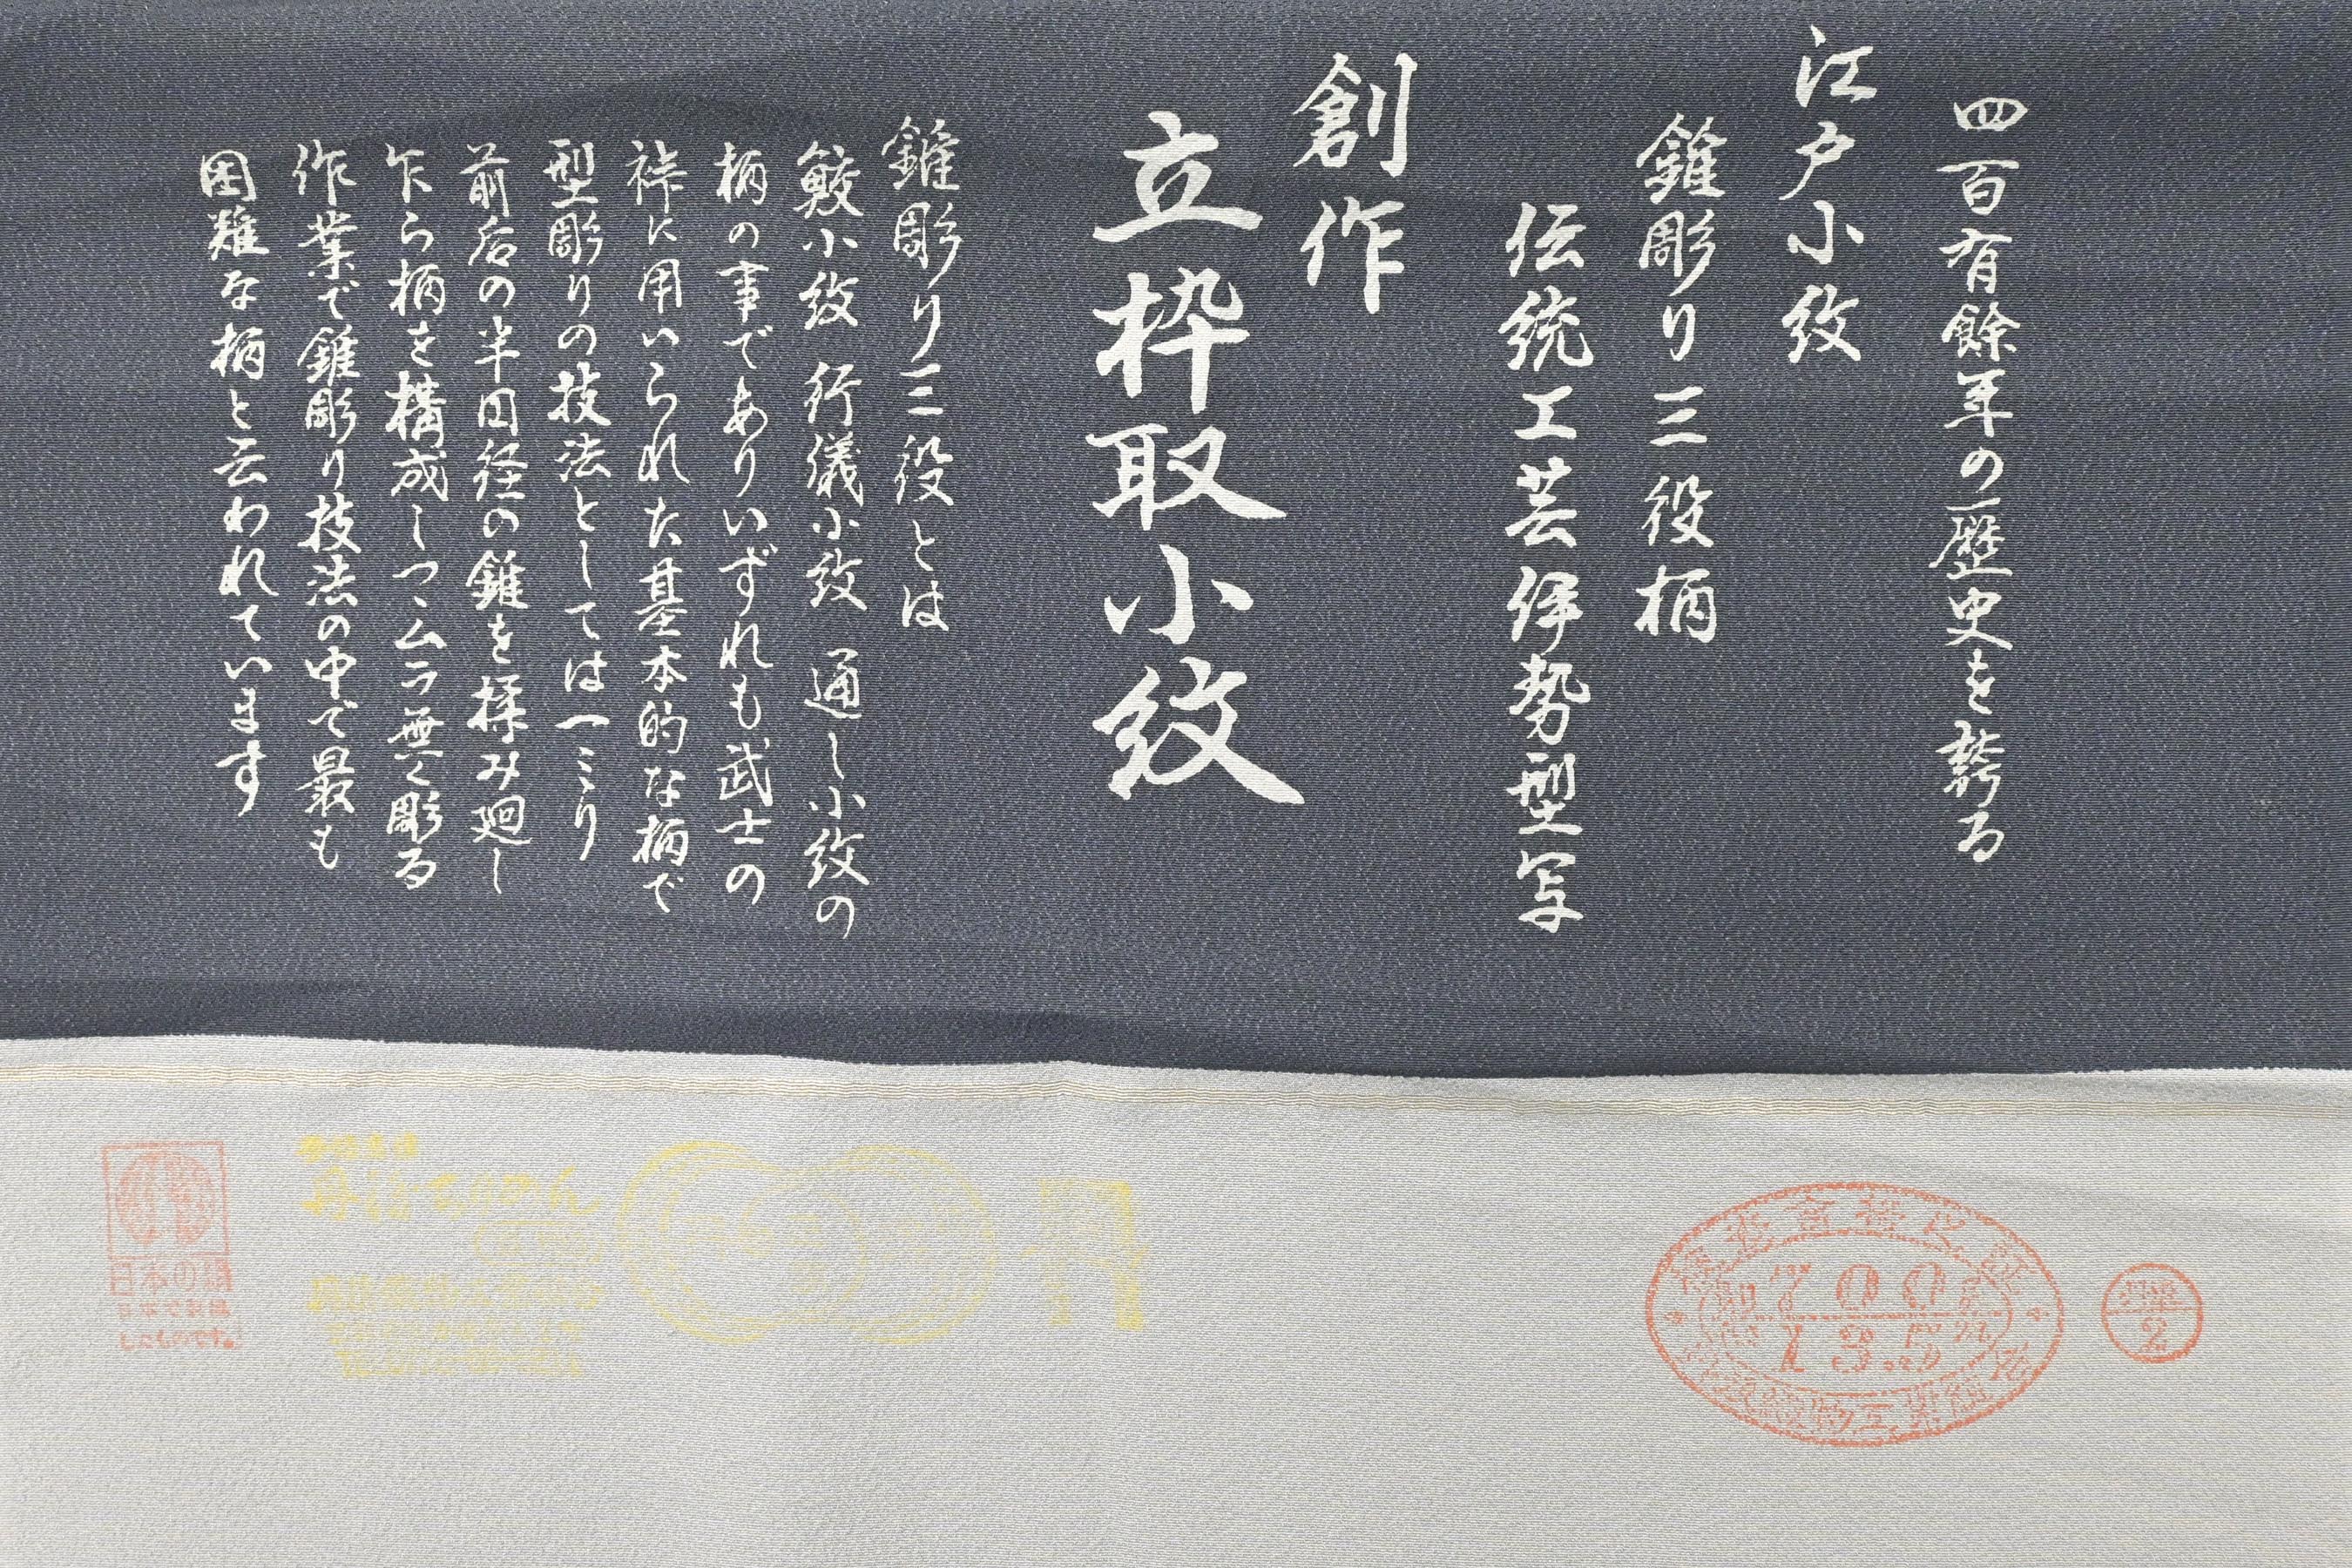 四百有餘年の歴史を誇る
江戸小紋
錐彫り三役柄
伝統工芸伊勢型写
創作
立枠取小紋
錐彫り三役とは
鮫小紋 行儀小紋 通し小紋の
柄の事でありいずれも武士の
裃に用いられた基本的な柄で
型彫りの技法としては一ミリ
前后の半円径の錐を揉み廻し
乍ら柄を構成しつつムラ無く彫る
作業で錐彫り技法の中で最も
困難な柄と云われています
日本の絹
日本で製織
したものです。
丹後ちりめん
丹後織物工業組合
700
13.5
丹後織物工業組合
2